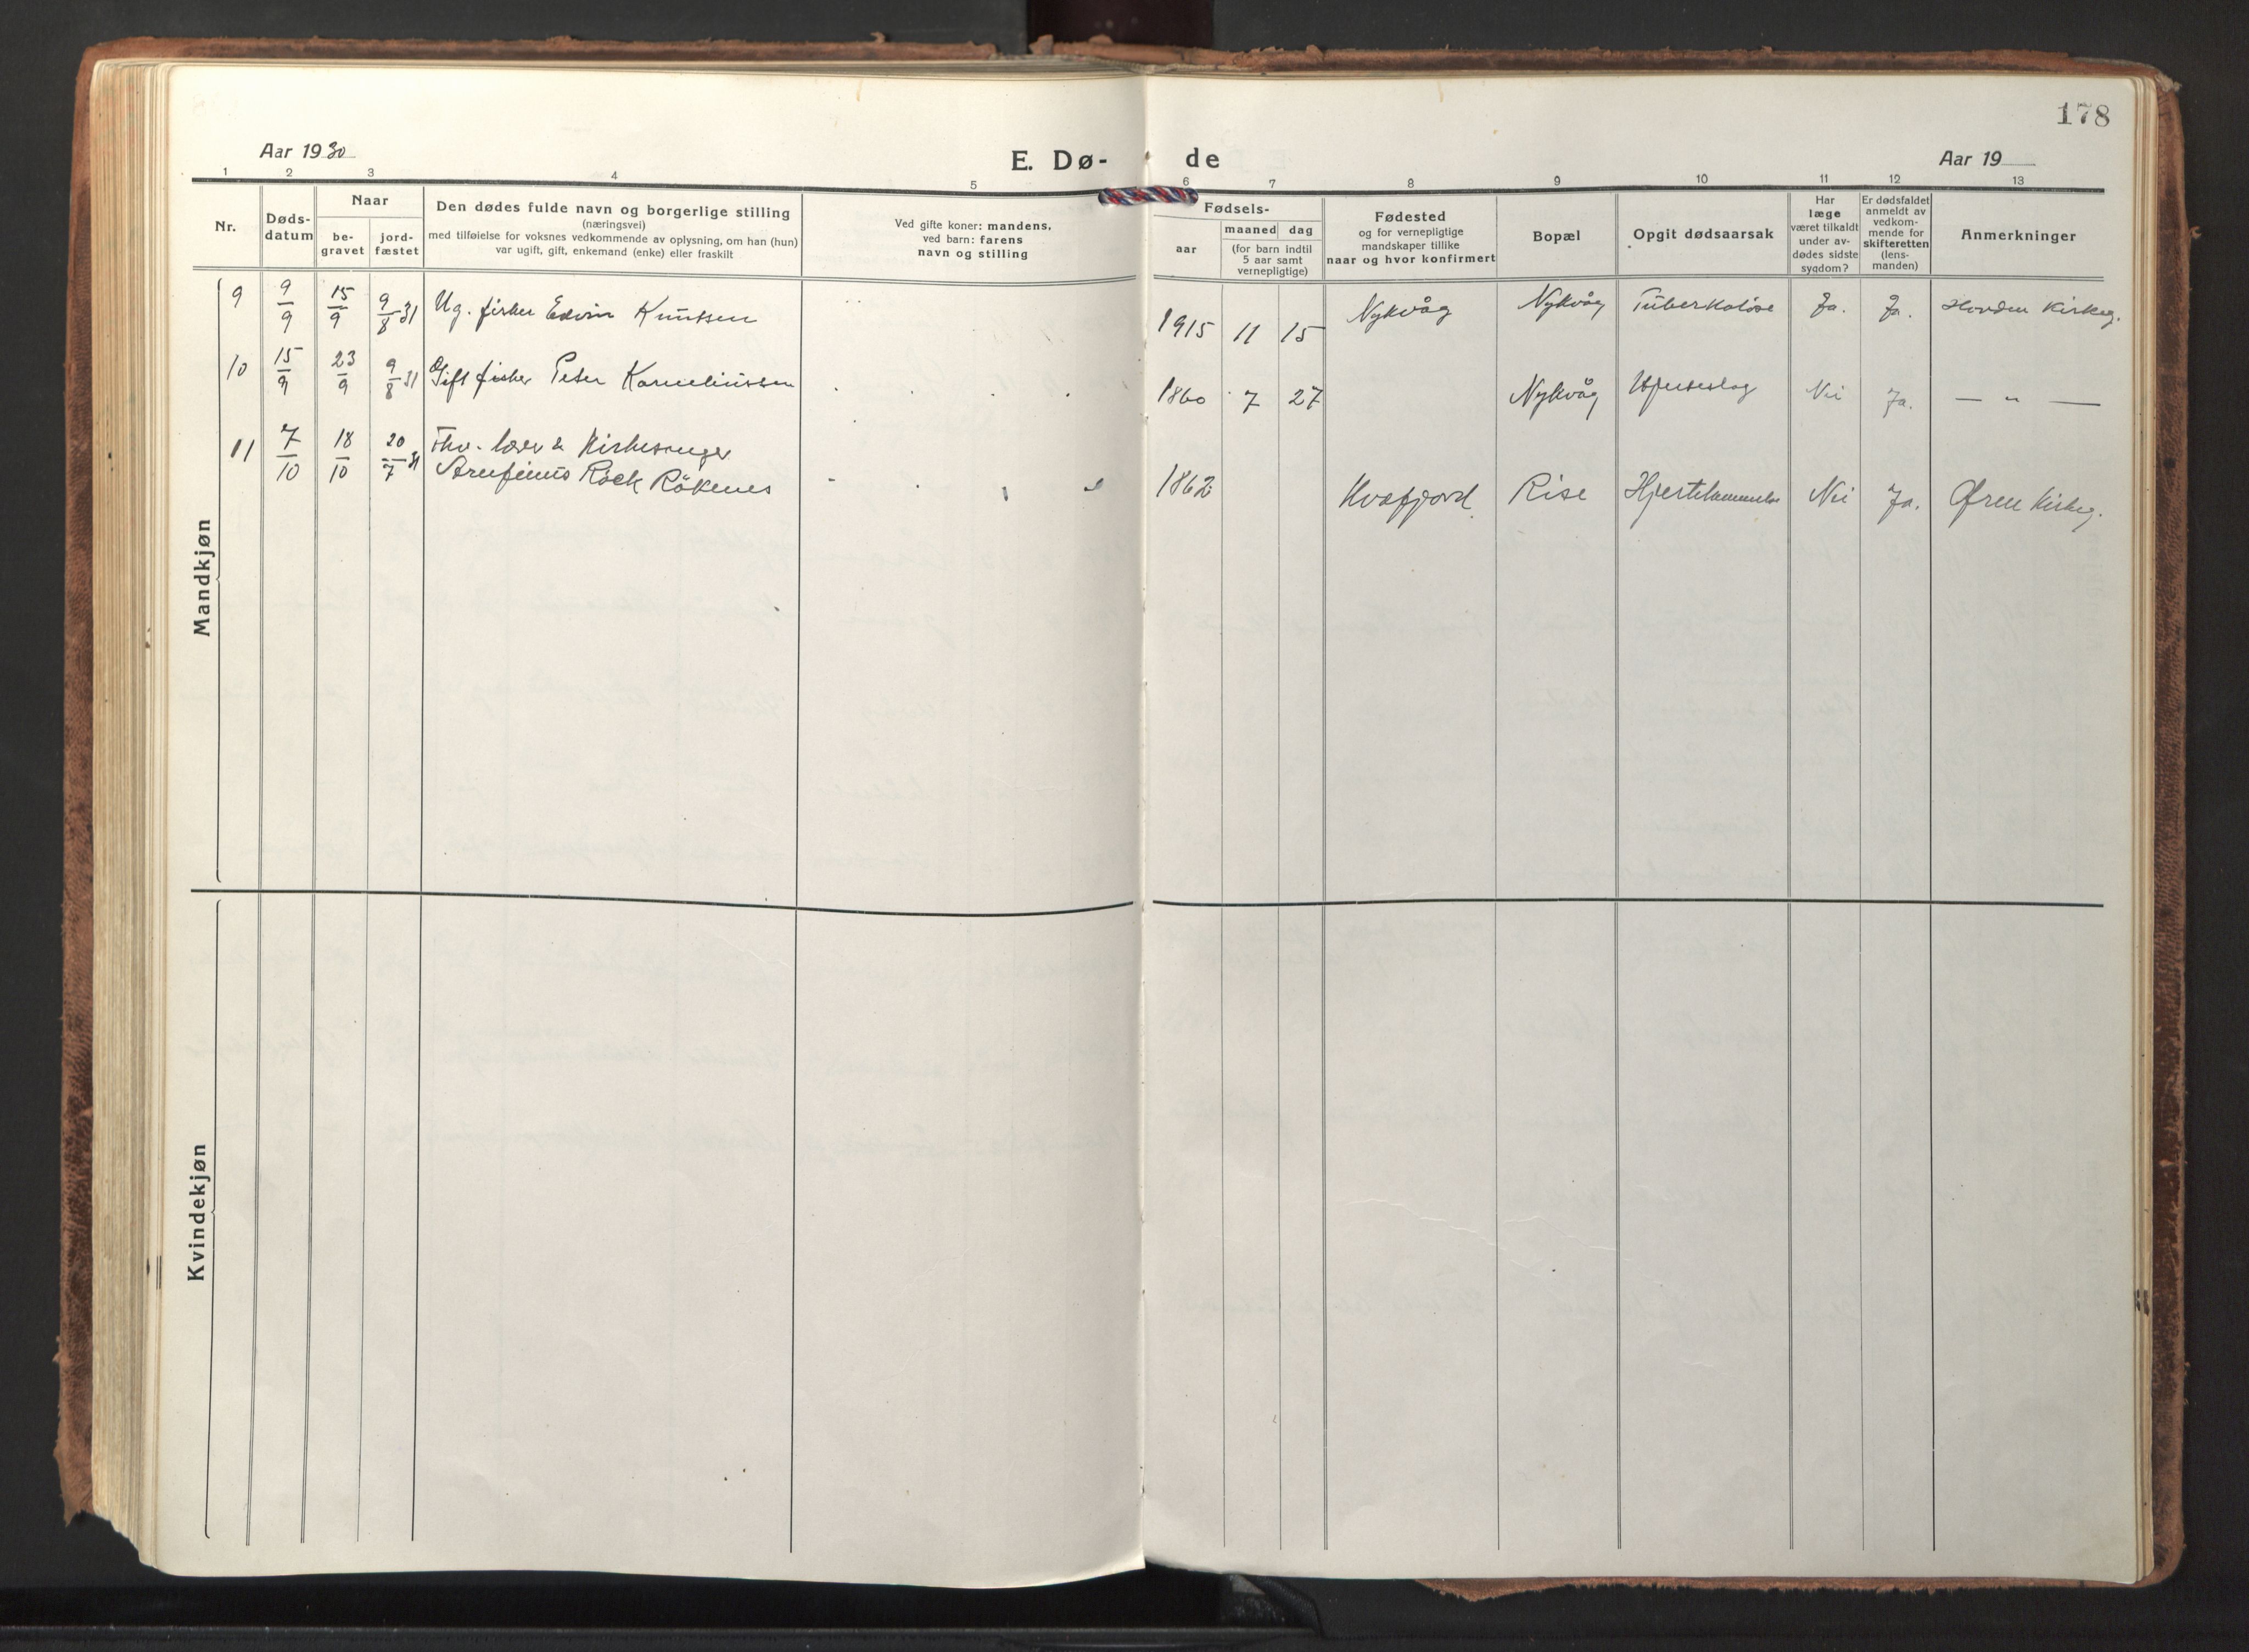 178
Aar 1930
E. Dø- de
Aar 19
1 2 3 4 5 6 7 8 9 10 11 12 13
Nr.
Døds-
datum
Naar
be-
gravet
jord-
fæstet
Den dødes fulde navn og borgerlige stilling
(næringsvei)
med tilføielse for voksnes vedkommende av oplysning, om han (hun)
var ugift, gift, enkemand (enke) eller fraskilt
Ved gifte koner: mandens,
ved barn: farens
navn og stilling
Fødsels-
aar
maaned dag
(for barn indtil
5 aar samt
vernepligtige)
Fødested
og for vernepligtige
mandskaper tillike
naar og hvor konfirmert
Bopæl
Opgit dødsaarsak
Har
læge
været tilkaldt
under av-
dødes sidste
sygdom?
Er dødsfaldet
anmeldt av
vedkom-
mende for
skifteretten
(lens-
manden)
Anmerkninger
Mandkjøn
9 9/9 15/9 9/8 31 Ug. fisker Edvin Knutsen 1915 11 15 Nykvåg Nykvåg Tuberkolose Ja. Ja. Hovden Kirkeg.
10 15/9 23/9 9/8 31 Gift fisker Peter Korneliussen 1860 7 27 Nykvåg Hjerteslag Nei Ja. — " —
11 7/10 18/10 20/7 31 lærer & Kirkesanger
Röck Rökenes 1862 Kvæfjord Rise Hjertelammelse Nei Ja. Øren Kirkeg.
Kvindekjøn